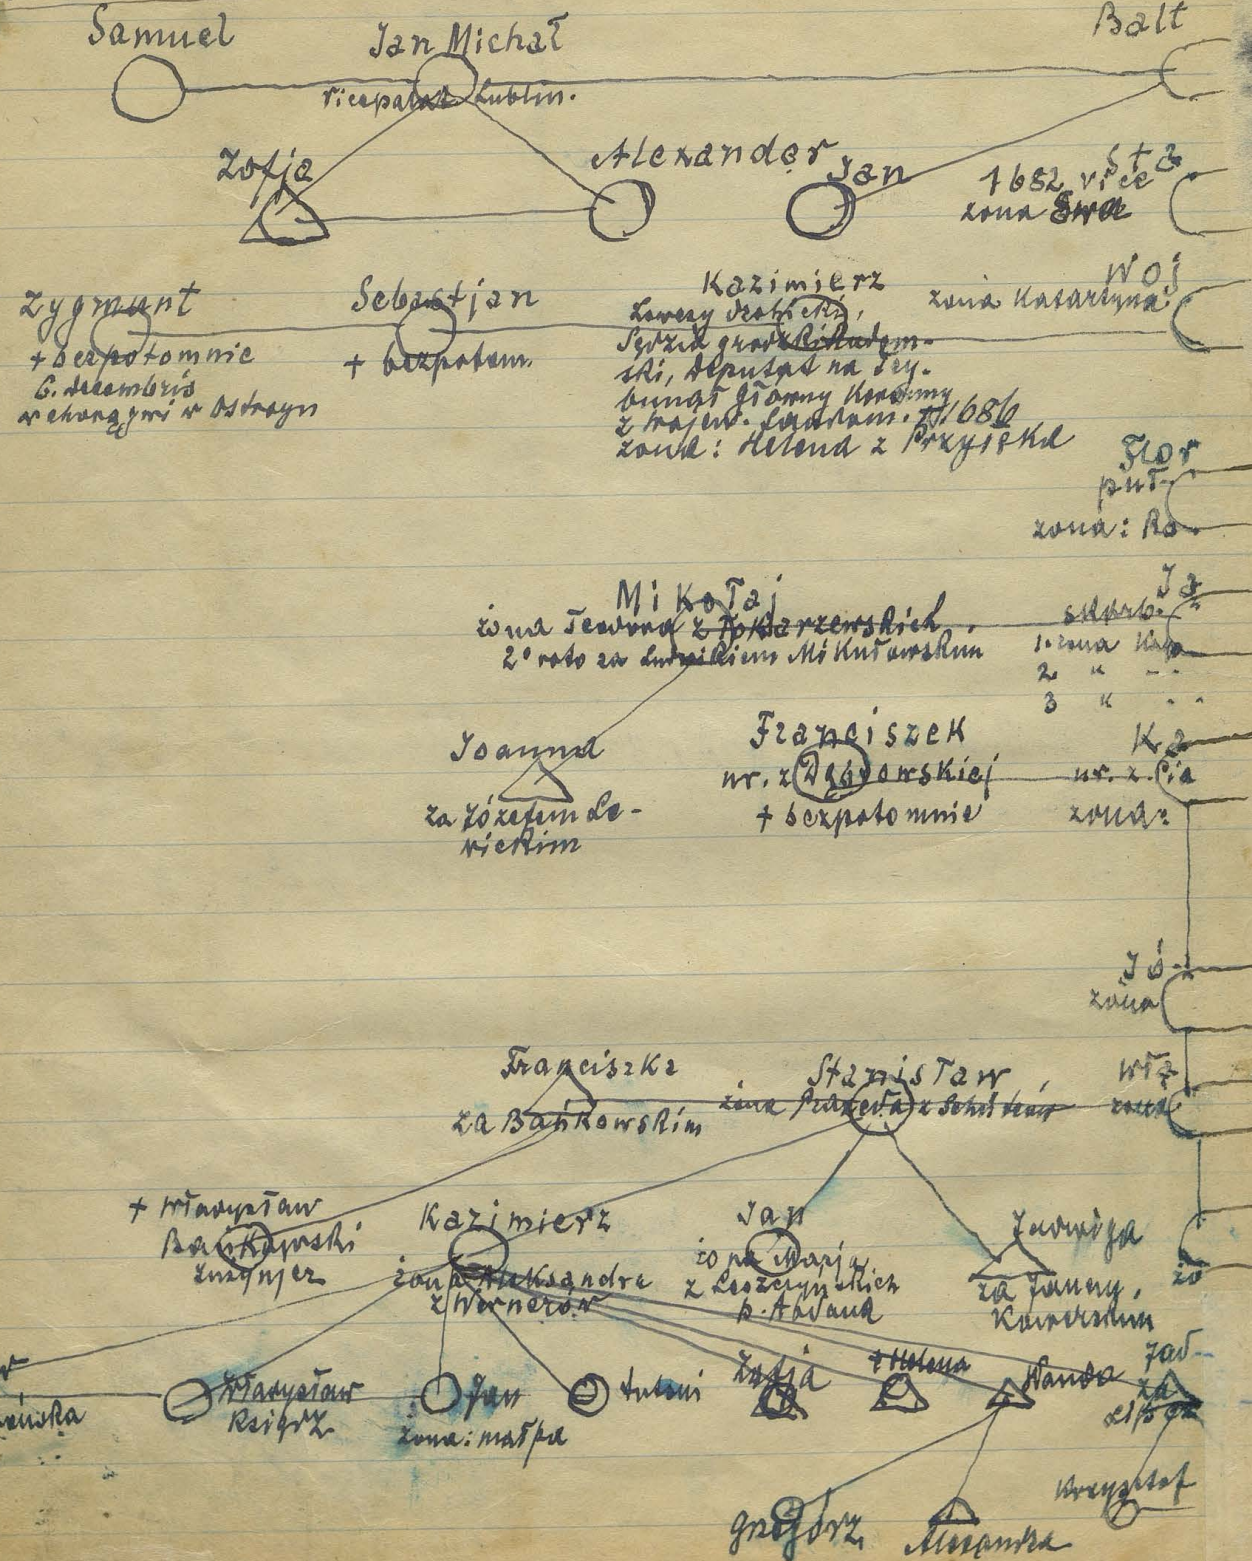 Samuel
Jan Michał
Balt
Lublin.
Zofja
Alexander
Jan
Sta
1682 vice
żona Ewa
Zygmunt
+ bezpotomnie
6. decembris
w chorągwi w Ostrogu
Sebastjan
+ bezpotom.
Kazimierz
Łowczy
Sędzia grodzki Radom-
ski, Deputat na Try-
bunał Główny Koronny
z wojew. Sandom. 1686
żona: Helena z Przyłęka
Woj
żona Katarzyna
Flor
puł-
żona: Ro
Mikołaj
żona Teodora z Tokarzewskich
2º voto za Ludwikiem Mikułowskim
Ja
skarb.
1. żona
2 " - -
3 " - -
Joanna
za Józefem Le-
wickim
Franciszek
ur. z Dąbrowskiej
+ bezpotomnie
Ka
ur. z Cia
żona:
Jó
żona
Franciszka
za Bańkowskim
Stanisław
żona
Wła
żona
+ Władysław
Bańkowski
inżynjer
Kazimierz
żona Aleksandra
z Wernerów
Jan
żona Marja
z Leszczyńskich
h. Abdank
Jadwiga
za
żo
Władysław
Ksiądz
Jan
żona: małpa
Antoni
Zofja
+ Helena
Wanda
Jad-
za
Grzegórz
Krzysztof